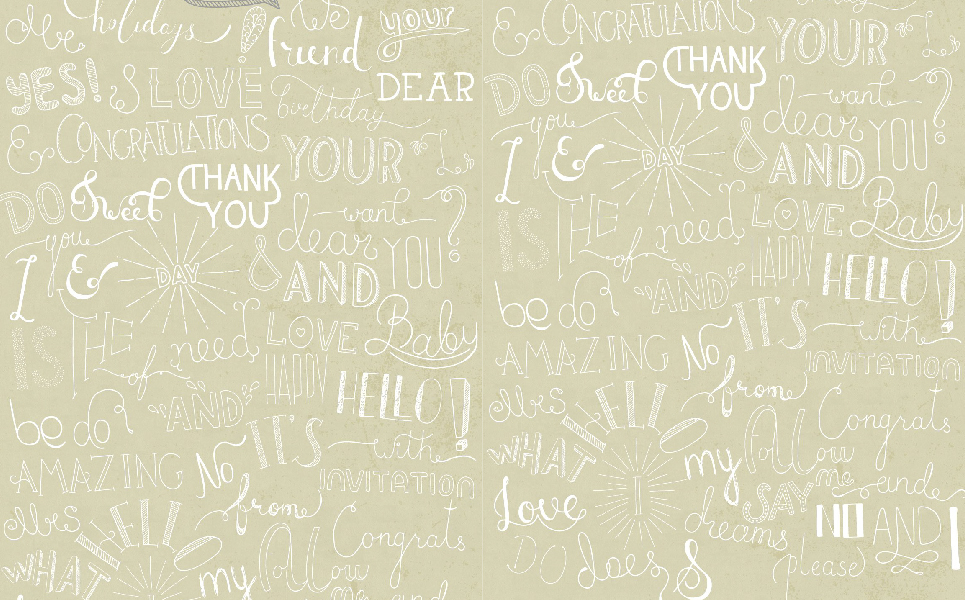 holidays
We
your
friend
YES! & LOVE
DEAR
birthday
& CONGRATULATIONS
YOUR
DO Sweet
THANK
YOU
want
?
you
dear YOU
I & DAY
& AND
IS THE of need
LOVE Baby
HAPPY HELLO!
be do "AND"
IT'S with
AMAZING No
INVITATION
from
Mrs TELL
follow
Congrats
WHAT my
me and
& CONGRATULATIONS
YOUR
DO Sweet
THANK
YOU
want
?
you
dear YOU
I & DAY
& AND
IS THE of need
LOVE Baby
HAPPY HELLO!
be do "AND"
IT'S with
AMAZING No
INVITATION
from
Mrs TELL
Congrats
follow
WHAT I my
me and
SAY
Love
dreams
NO AND !
DO does &
please